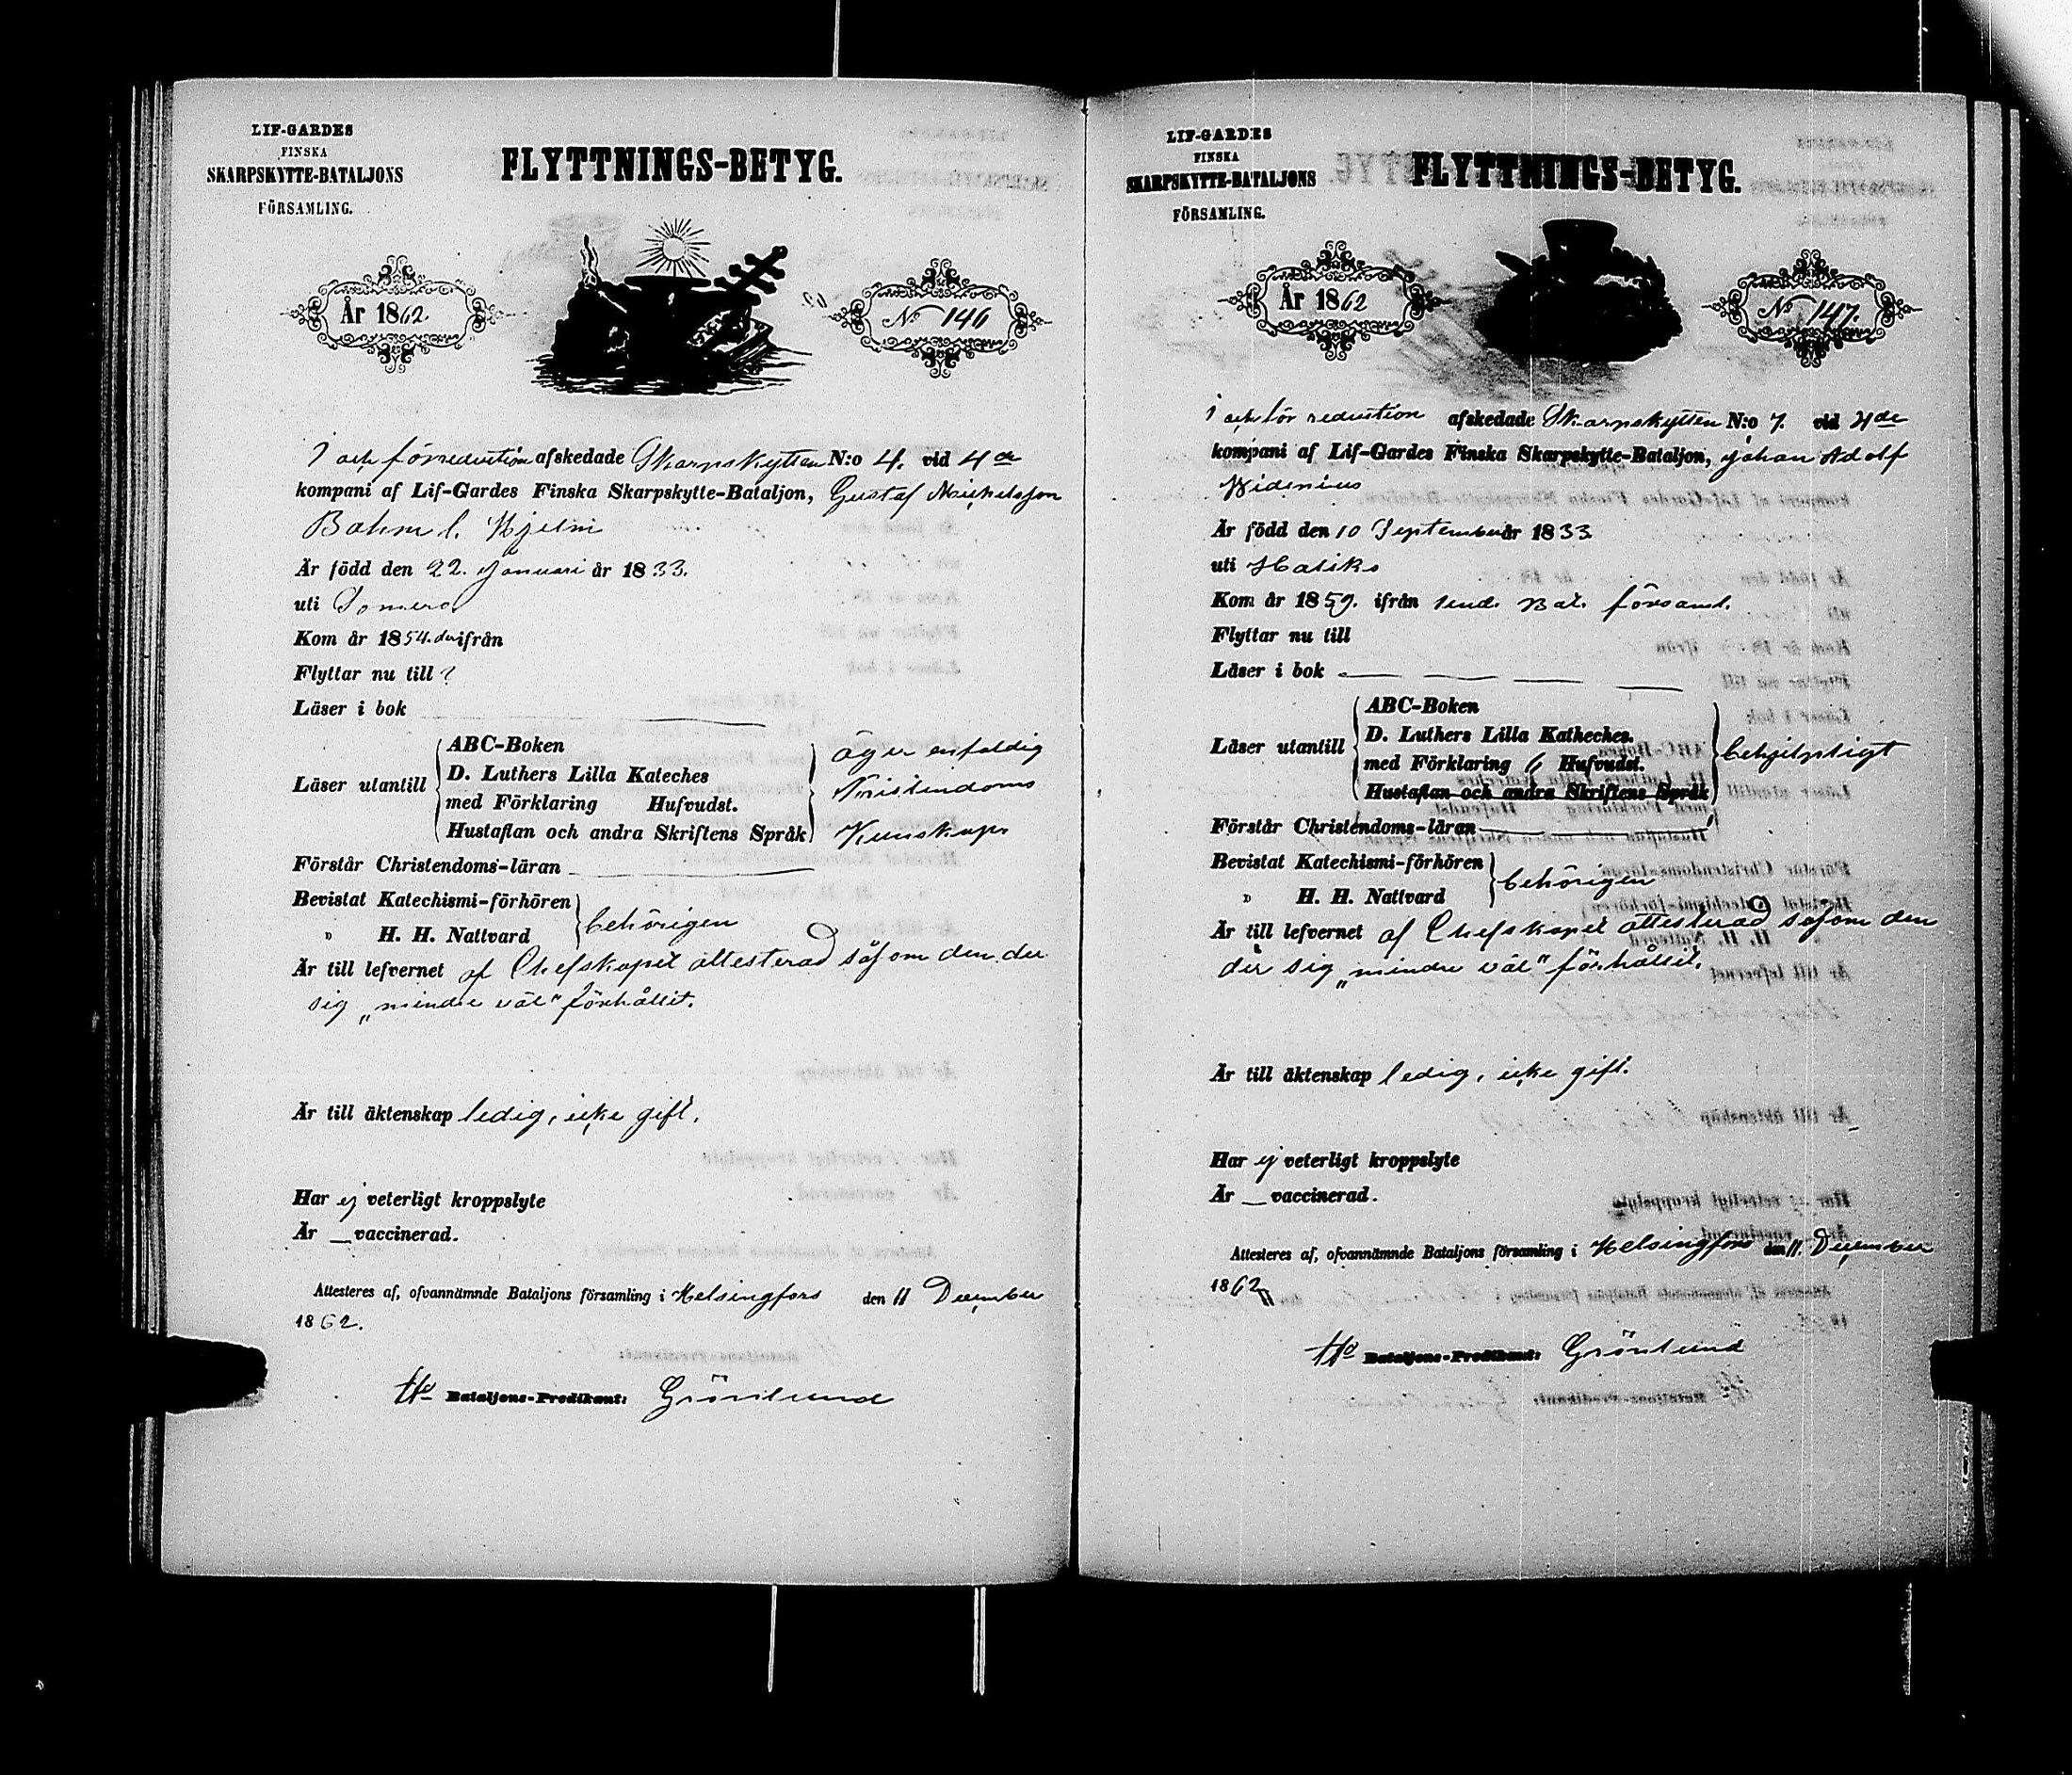 LIF-GARDES
FINSKA
SKARPSKYTTE-BATALJONS
FÖRSAMLING.
FLYTTNINGS-BETYG.
År 1862.
No 146
I och för reduction afskedade Skarpskytten N:o 4. vid 4de
kompani af Lif-Gardes Finska Skarpskytte-Bataljon, Gustaf Michelsson
Bohm l. Hjelm
Är född den 22. Januari år 1833.
uti Somero
Kom år 1854. ifrån
Flyttar nu till ?
Läser i bok
Läser utantill
ABC-Boken
D. Luthers Lilla Kateches
med Förklaring Hufvudst.
Hustaflan och andra Skriftens Språk
äger enfaldig
Kristendoms
Kunskap
Förstår Christendoms-läran
Bevistat Katechismi-förhören
" H. H. Nattvard
behörigen
Är till lefvernet af Chefskapet attesterad såsom den der
sig „mindre väl" förhållit.
Är till äktenskap ledig, icke gift.
Har ej veterligt kroppslyte
Är _ vaccinerad.
Attesteres af, ofvannämnde Bataljons församling i Helsingfors den 11 December
1862.
Bataljons-Predikant: Grönlund
LIF-GARDES
FINSKA
SKARPSKYTTE-BATALJONS
FÖRSAMLING.
FLYTTNINGS-BETYG.
År 1862
No 147.
I och för reduction afskedade Skarpskytten N:o 7. vid 4de
kompani af Lif-Gardes Finska Skarpskytte-Bataljon, Johan Adolf
Widenius
Är född den 10 September år 1833
uti Haliko
Kom år 1859. ifrån Ind. Bat. församl.
Flyttar nu till
Läser i bok
Läser utantill
ABC-Boken
D. Luthers Lilla Katheches.
med Förklaring 6 Hufvudst.
Hustaflan och andra Skriftens Språk
behjelpligt
Förstår Christendoms-läran
Bevistat Katechismi-förhören
" H. H. Nattvard
behörigen
Är till lefvernet af Chefskapet attesterad såsom den
der sig „mindre väl" förhållit.
Är till äktenskap ledig, icke gift.
Har ej veterligt kroppslyte
Är _ vaccinerad.
Attesteres af, ofvannämnde Bataljons församling i Helsingfors den 11. December
1862
Bataljons-Predikant: Grönlund